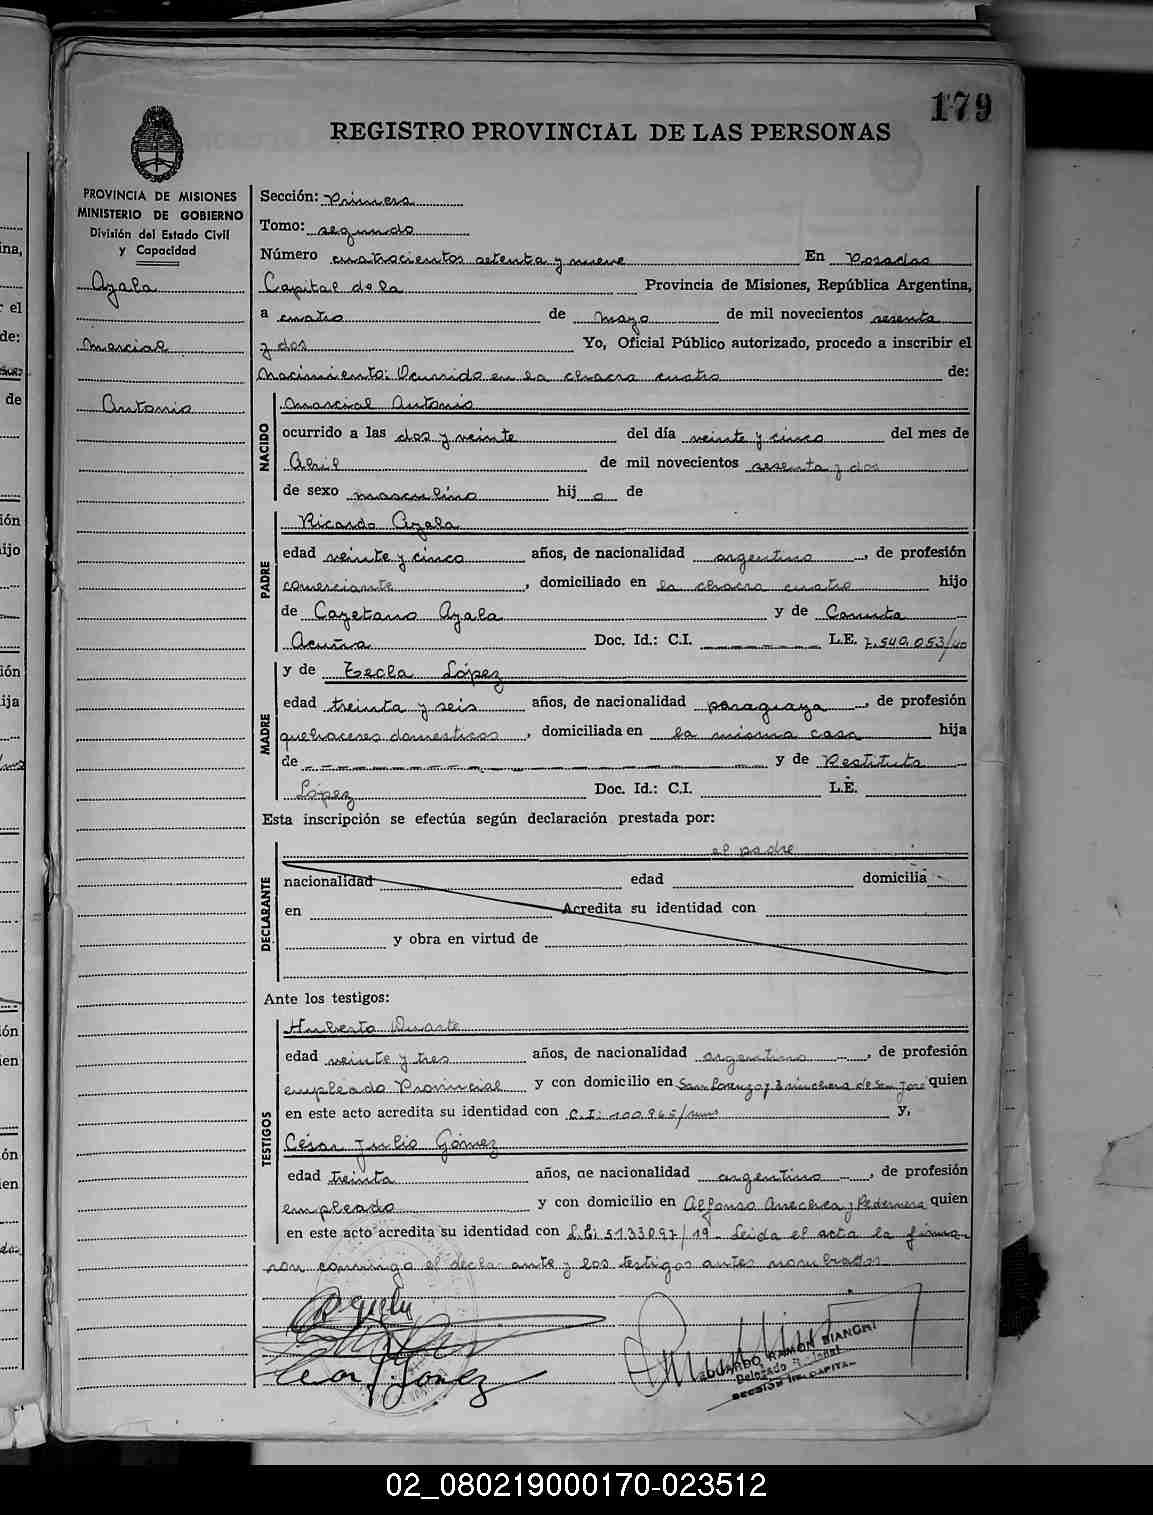 179
REGISTRO PROVINCIAL DE LAS PERSONAS
PROVINCIA DE MISIONES
MINISTERIO DE GOBIERNO
División del Estado Civil
y Capacidad
Ayala
Marcial
Antonio
Sección: Primera
Tomo: segundo
Número cuatrocientos setenta y nueve En Posadas
Capital de la Provincia de Misiones, República Argentina,
a cuatro de mayo de mil novecientos sesenta
y dos Yo, Oficial Público autorizado, procedo a inscribir el
nacimiento: Ocurrido en la chacra cuatro de:
NACIDO
Marcial Antonio
ocurrido a las dos y veinte del día veinte y cinco del mes de
Abril de mil novecientos sesenta y dos
de sexo masculino hij o de
PADRE
Ricardo Ayala
edad veinte y cinco años, de nacionalidad argentino, de profesión
comerciante, domiciliado en la chacra cuatro hijo
de Cayetano Ayala y de Canuta
Acuña Doc. Id.: C.I. L.E. 7.540.053/40
MADRE
y de Tecla López
edad treinta y seis años, de nacionalidad paraguaya, de profesión
quehaceres domesticos, domiciliada en la misma casa hija
de y de Restituta
López Doc. Id.: C.I. L.E.
Esta inscripción se efectúa según declaración prestada por:
DECLARANTE
el padre
nacionalidad edad domicilia
en Acredita su identidad con
y obra en virtud de
Ante los testigos:
TESTIGOS
Huberto Duarte
edad veinte y tres años, de nacionalidad argentino, de profesión
empleado Provincial y con domicilio en San Lorenzo y Trinchera de San José quien
en este acto acredita su identidad con C.I: 100.965/mns y,
César Julio Gómez
edad treinta años, de nacionalidad argentino, de profesión
empleado y con domicilio en Alfonso Arrechea y Pedernera quien
en este acto acredita su identidad con L.E: 5133097/19- Leida el acta la firma-
ron conmigo el declarante y los testigos antes nombrados
Cesar J. Gomez
EDUARDO RAMON BIANCHI
Delegado
SECCION 1ra. CAPITAL
02_080219000170-023512